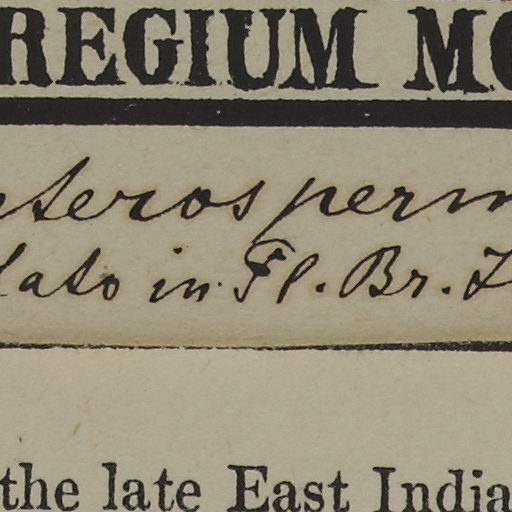 REGIUM MO
nterosperm
lato in Fl. Br. I
the late East India